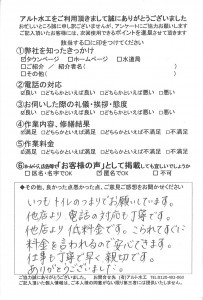 アルト水工をご利用頂きまして誠にありがとうございました
お忙しいところ誠に申し訳ございませんが、アンケートにご協力お願いします
ご記入いただいたお客様には、次回使用できるポイントを進呈させて頂きます
該当する□に印をつけてください
①弊社を知ったきっかけ
☑タウンページ □ホームページ □水道局
□ご紹介/紹介者名( )
□その他( )
②電話の対応
☑良い □どちらかといえば良い □どちらかといえば悪い □悪い
③お伺いした際の礼儀・挨拶・態度
☑良い □どちらかといえば良い □どちらかといえば悪い □悪い
④作業内容、修繕結果
☑満足 □どちらかといえば満足 □どちらかといえば不満足 □不満足
⑤作業料金
☑満足 □どちらかといえば満足 □どちらかといえば不満足 □不満足
⑥ホームページ、広告等で「お客様の声」として掲載しても宜しいでしょうか
□区名・名字でOK ☑匿名でOK □不可
◆その他、良かった点悪かった点、ご意見ご感想をお聞かせください
いつもトイレのつまりでお願いしています。
他店より電話の対応も丁寧です。
他店より低料金です。こられてすぐに
料金を言われるので安心できます。
仕事も丁寧で早く親切です。
ありがとうございました。
ご協力誠にありがとうございました。